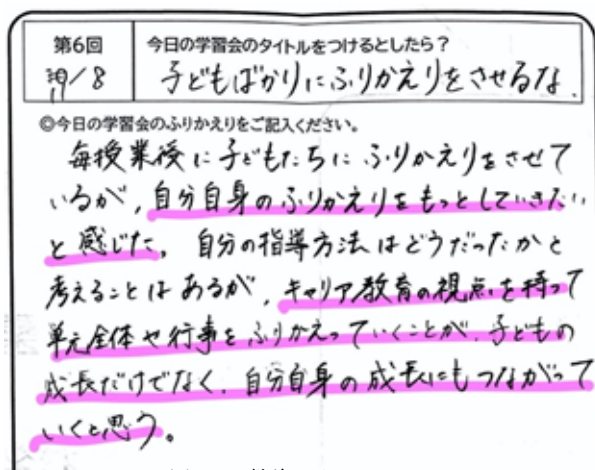 第6回
今日の学習会のタイトルをつけるとしたら？
/8
子どもばかりにふりかえりをさせるな
◎今日の学習会のふりかえりをご記入ください。
毎授業後に子どもたちにふりかえりをさせて
いるが、自分自身のふりかえりをもっとしていきたい
と感じた。自分の指導方法はどうだったかと
考えることはあるが、キャリア教育の視点を持って
単元全体や行事をふりかえっていくことが、子どもの
成長だけでなく、自分自身の成長にもつながって
いくと思う。